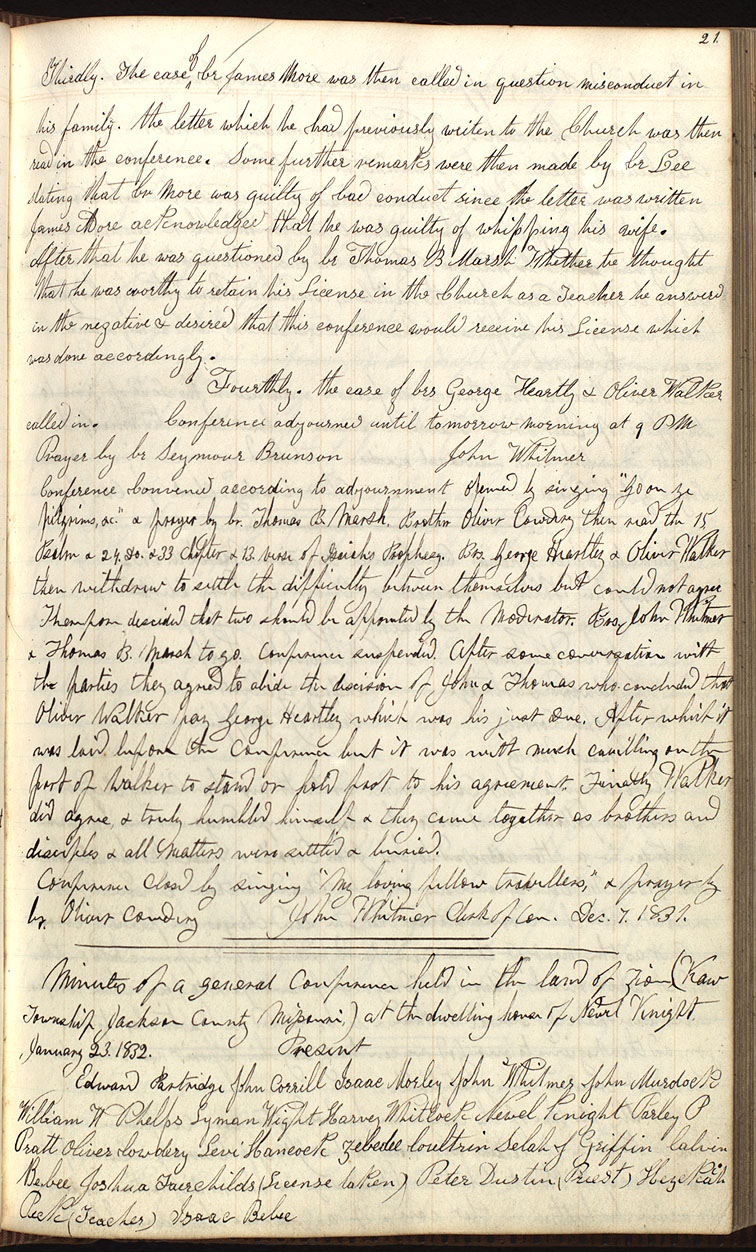 21.
Thirdly. The case of br James More was then called in question misconduct in
his family. the letter which he had previously writen to the Church was then
read in the conference. Some further remarks were then made by br Lee
stating that br More was guilty of bad conduct since the letter was written
James More acknowledged that he was guilty of whipping his wife.
After that he was questioned by br Thomas B Marsh Whether he thought
that he was worthy to retain his License in the Church as a Teacher he answerd
in the negative & desired that this conference would receive his License which
was done accordingly.
Fourthly. the case of brs George Heartly & Oliver Walker
called in. Conference adjourned until tomorrow morning at 9 PM
Prayer by br Seymour Brunson John Whitmer
Conference Convened according to adjournment opened by singing "Go on ye
pilgrims, &c." & prayer by br. Thomas B. Marsh. Brother Oliver Cowdery then read the 15
Psalm & 24. do. & 33 Chapter & 13. verse of Isaiahs Prophesy. Brs. George Heartley & Oliver Walker
then withdrew to settle the difficulty between themselves but could not agree
Thereupon decided that two should be appointed by the Moderator. Brs. John Whitmer
& Thomas B. Marsh to go. Conference suspended. After some conversation with
the parties they agreed to abide the decision of John & Thomas who concluded that
Oliver Walker pay George Heartley which was his just due. After which it
was laid before the Conference but it was with much cavilling on the
part of Walker to stand or hold fast to his agreement. Finally Walker
did agree, & truly humbled himself & they came together as brothers and
disciples & all matters were settled & buried.
Conference closed by singing "My loving fellow travellers," & prayer by
br. Oliver Cowdery John Whitmer Clerk of Con. Dec. 7. 1831.
Minutes of a general Conference held in the land of Zion (Kaw
Township, Jackson County Missouri,) at the dwelling house of Newel Knight
January 23. 1832. Present
Edward Partridge John Corrill Isaac Morley John Whitmer John Murdock
William W Phelps Lyman Wight Harvey Whitlock Newel Knight Parley P
Pratt Oliver Cowdery Levi Hancock Zebedee Coultrin Selah J Griffin Calvin
Beebee Joshua Fairchilds (License taken) Peter Dustin (Priest) Hezekiah
Peck (Teacher) Isaac Bebee